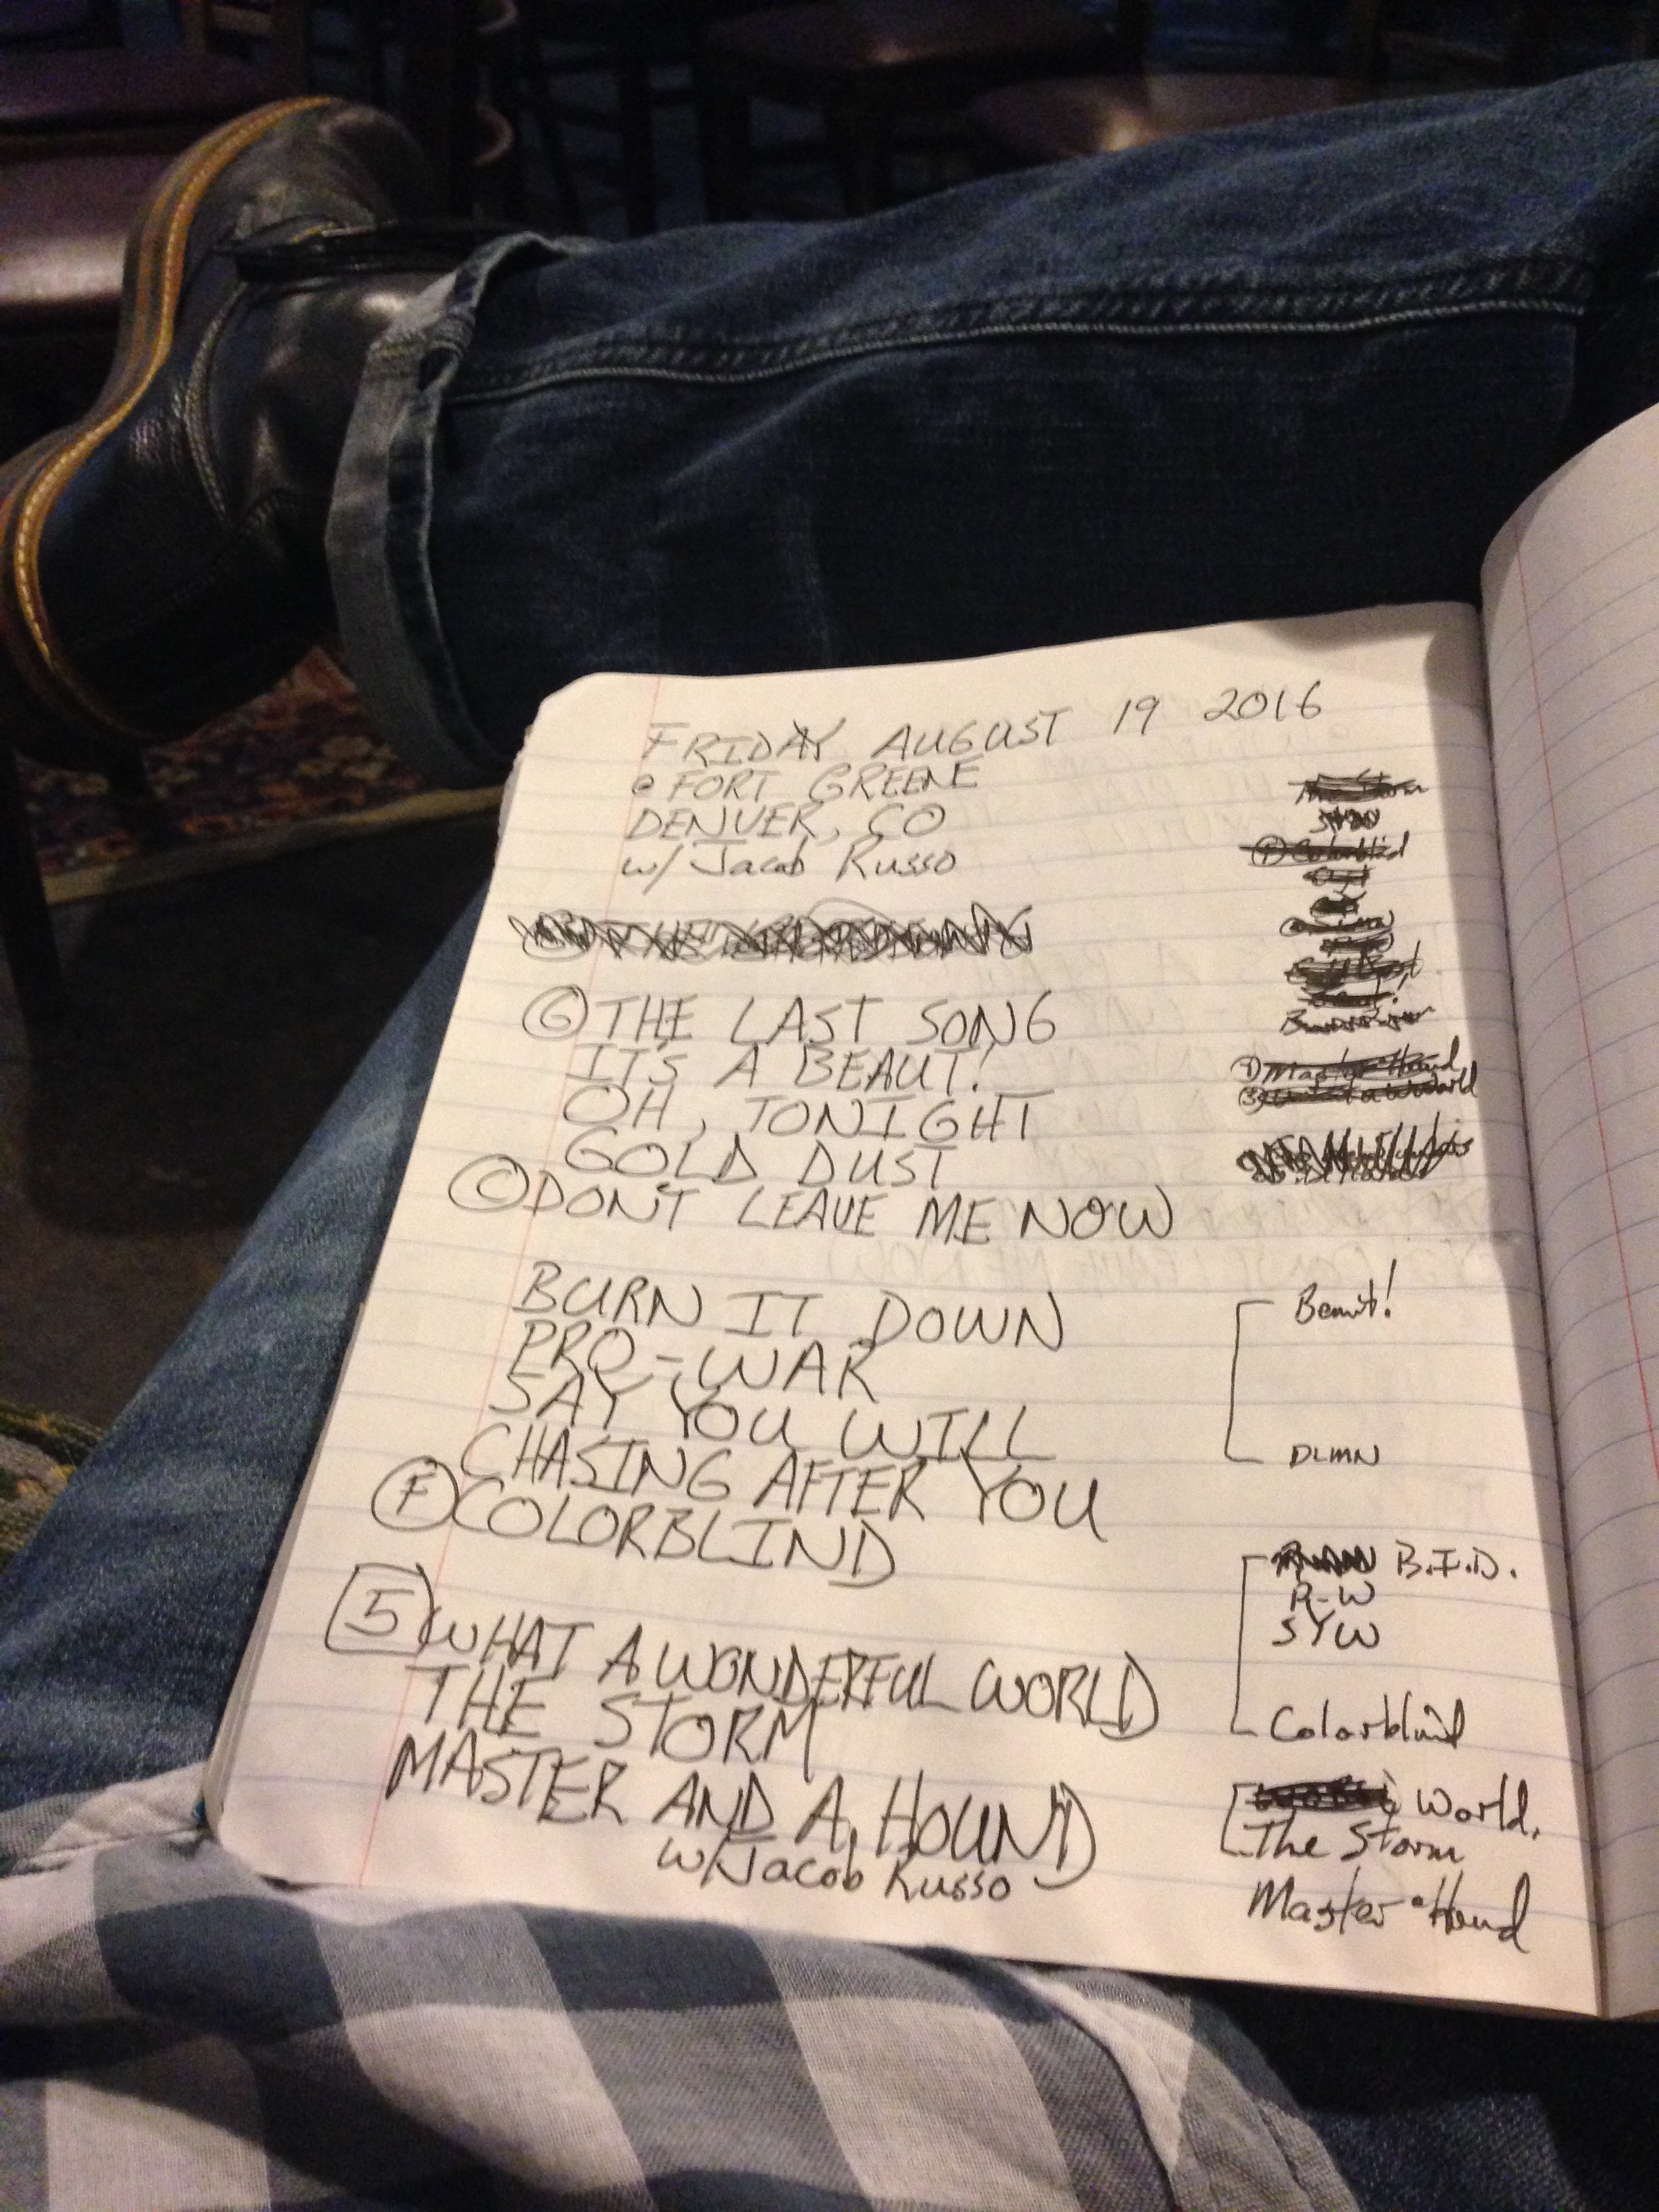 FRIDAY AUGUST 19 2016
@ FORT GREENE
DENVER, CO
w/ Jacob Russo
G THE LAST SONG
IT'S A BEAUT!
OH, TONIGHT
GOLD DUST
C DON'T LEAVE ME NOW
BURN IT DOWN
PRO-WAR
SAY YOU WILL
CHASING AFTER YOU
F COLORBLIND
5 WHAT A WONDERFUL WORLD
THE STORM
MASTER AND A HOUND
w/Jacob Russo
The Storm
SYW
Colorblind
Master Hound
Beaut!
DLMN
B.I.D.
P-W
SYW
Colorblind
World.
The Storm
Master Hound